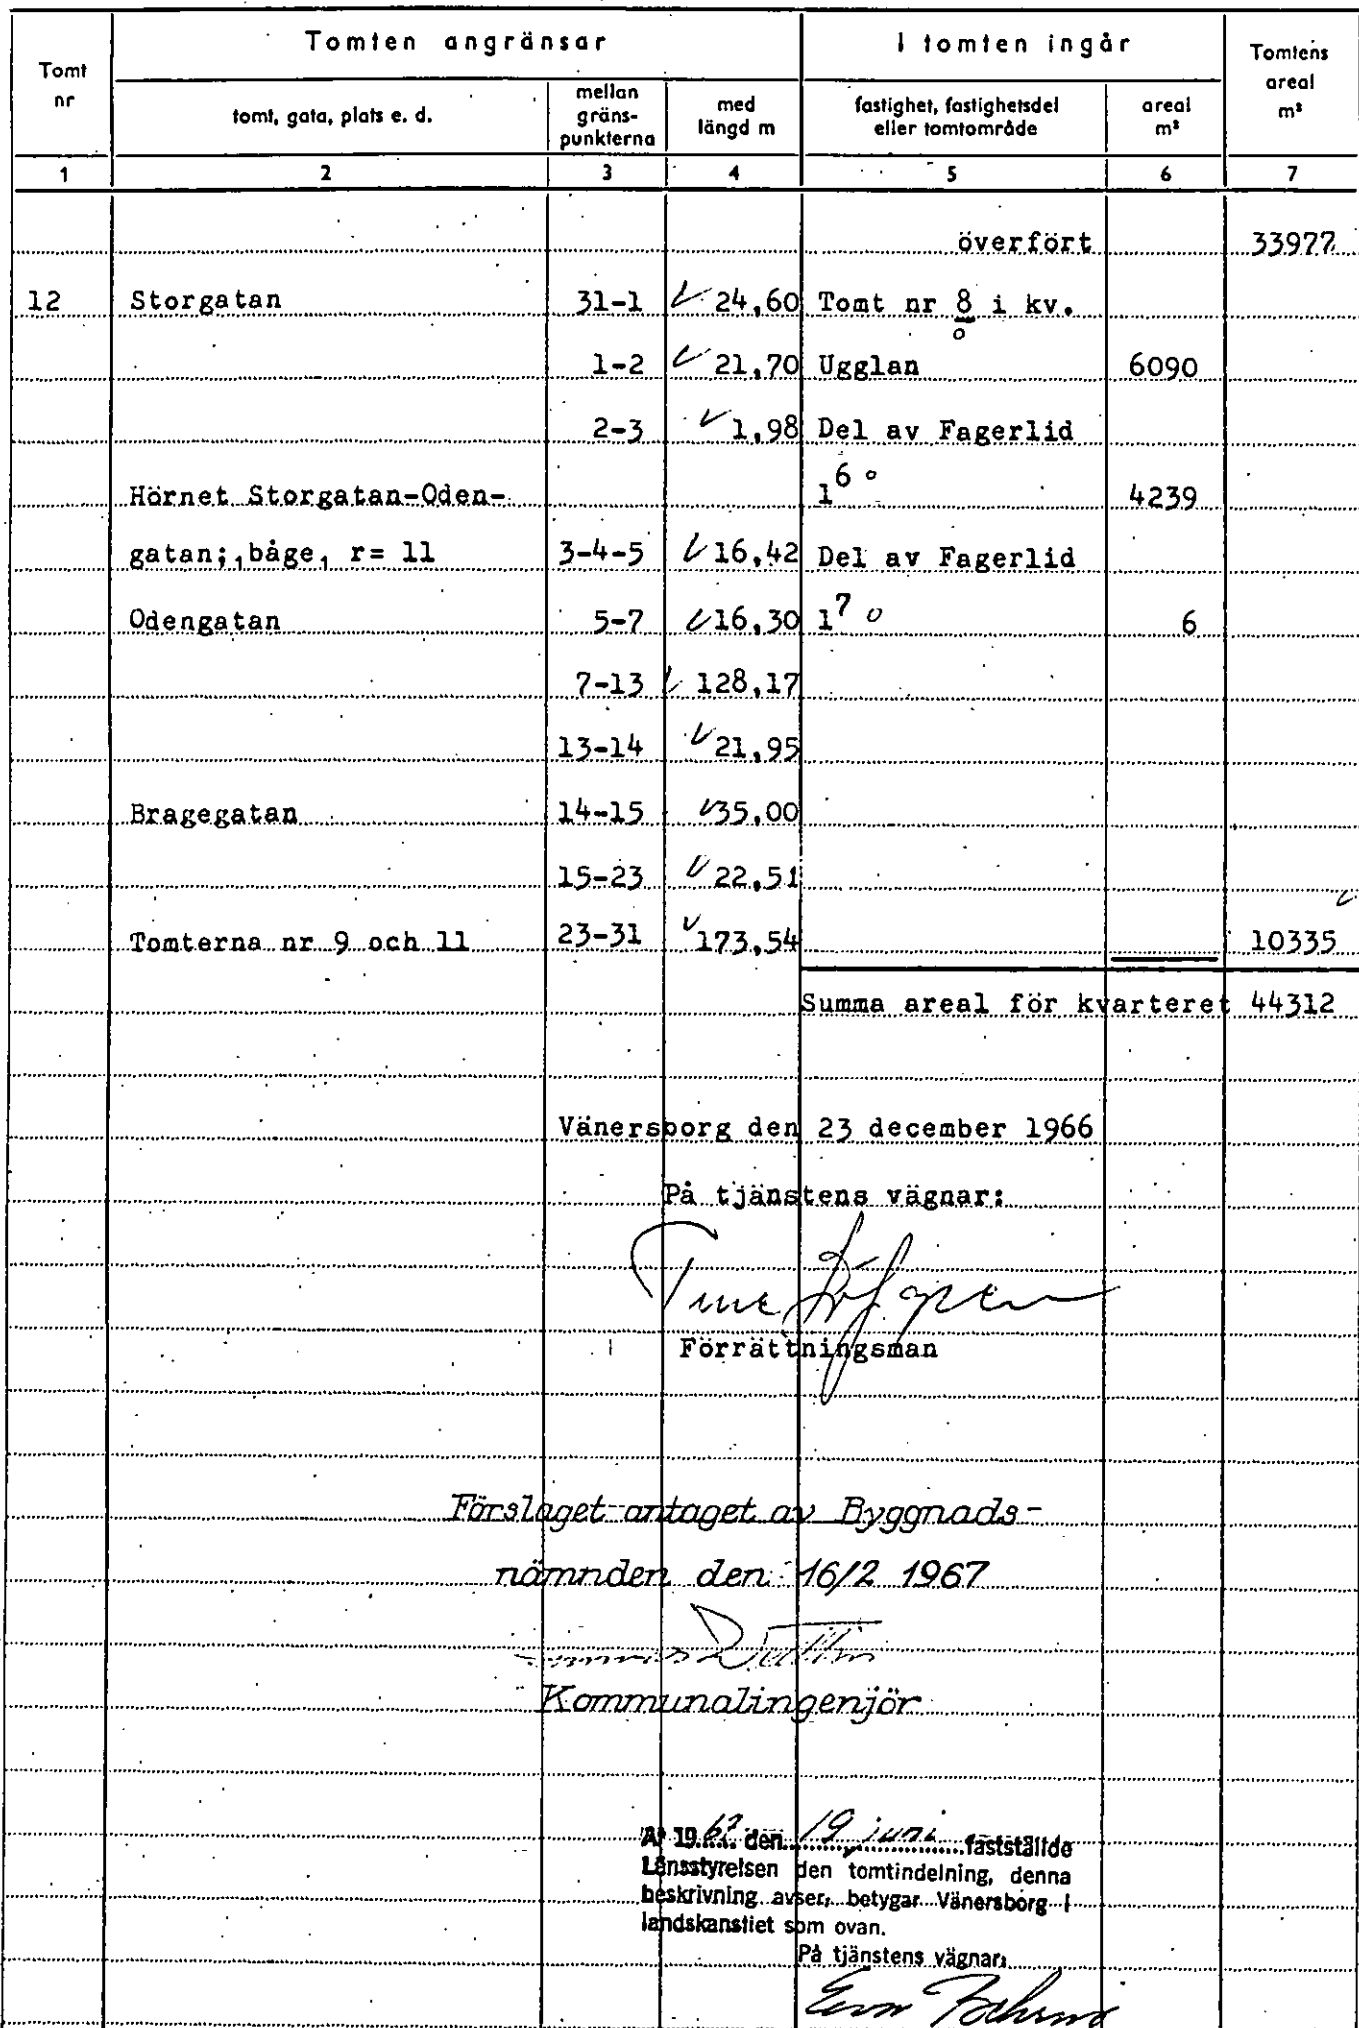 Tomt nr	Tomten angränsar	I tomten ingår	Tomtens areal m²
tomt, gata, plats e. d.	mellan gräns-punkterna	med längd m	fastighet, fastighetsdel eller tomtområde	areal m²
1	2	3	4	5	6	7
överfört	33977
12	Storgatan	31-1	24,60	Tomt nr 8 i kv.
1-2	21,70	Ugglan	6090
2-3	1,98	Del av Fagerlid
Hörnet Storgatan-Oden-	1⁶	4239
gatan;,båge, r= 11	3-4-5	16,42	Del av Fagerlid
Odengatan	5-7	16,30	1⁷	6
7-13	128,17
13-14	21,95
Bragegatan	14-15	35,00
15-23	22,51
Tomterna nr 9 och 11	23-31	173,54	10335
Summa areal för kvarteret 44312
Vänersborg den 23 december 1966
På tjänstens vägnar:
Förrättningsman
Förslaget antaget av Byggnads-
nämnden den 16/2 1967
Kommunalingenjör
År 1967 den 19 juni fastställde
Länsstyrelsen den tomtindelning, denna
beskrivning avser, betygar Vänersborg i
landskansliet som ovan.
På tjänstens vägnar: